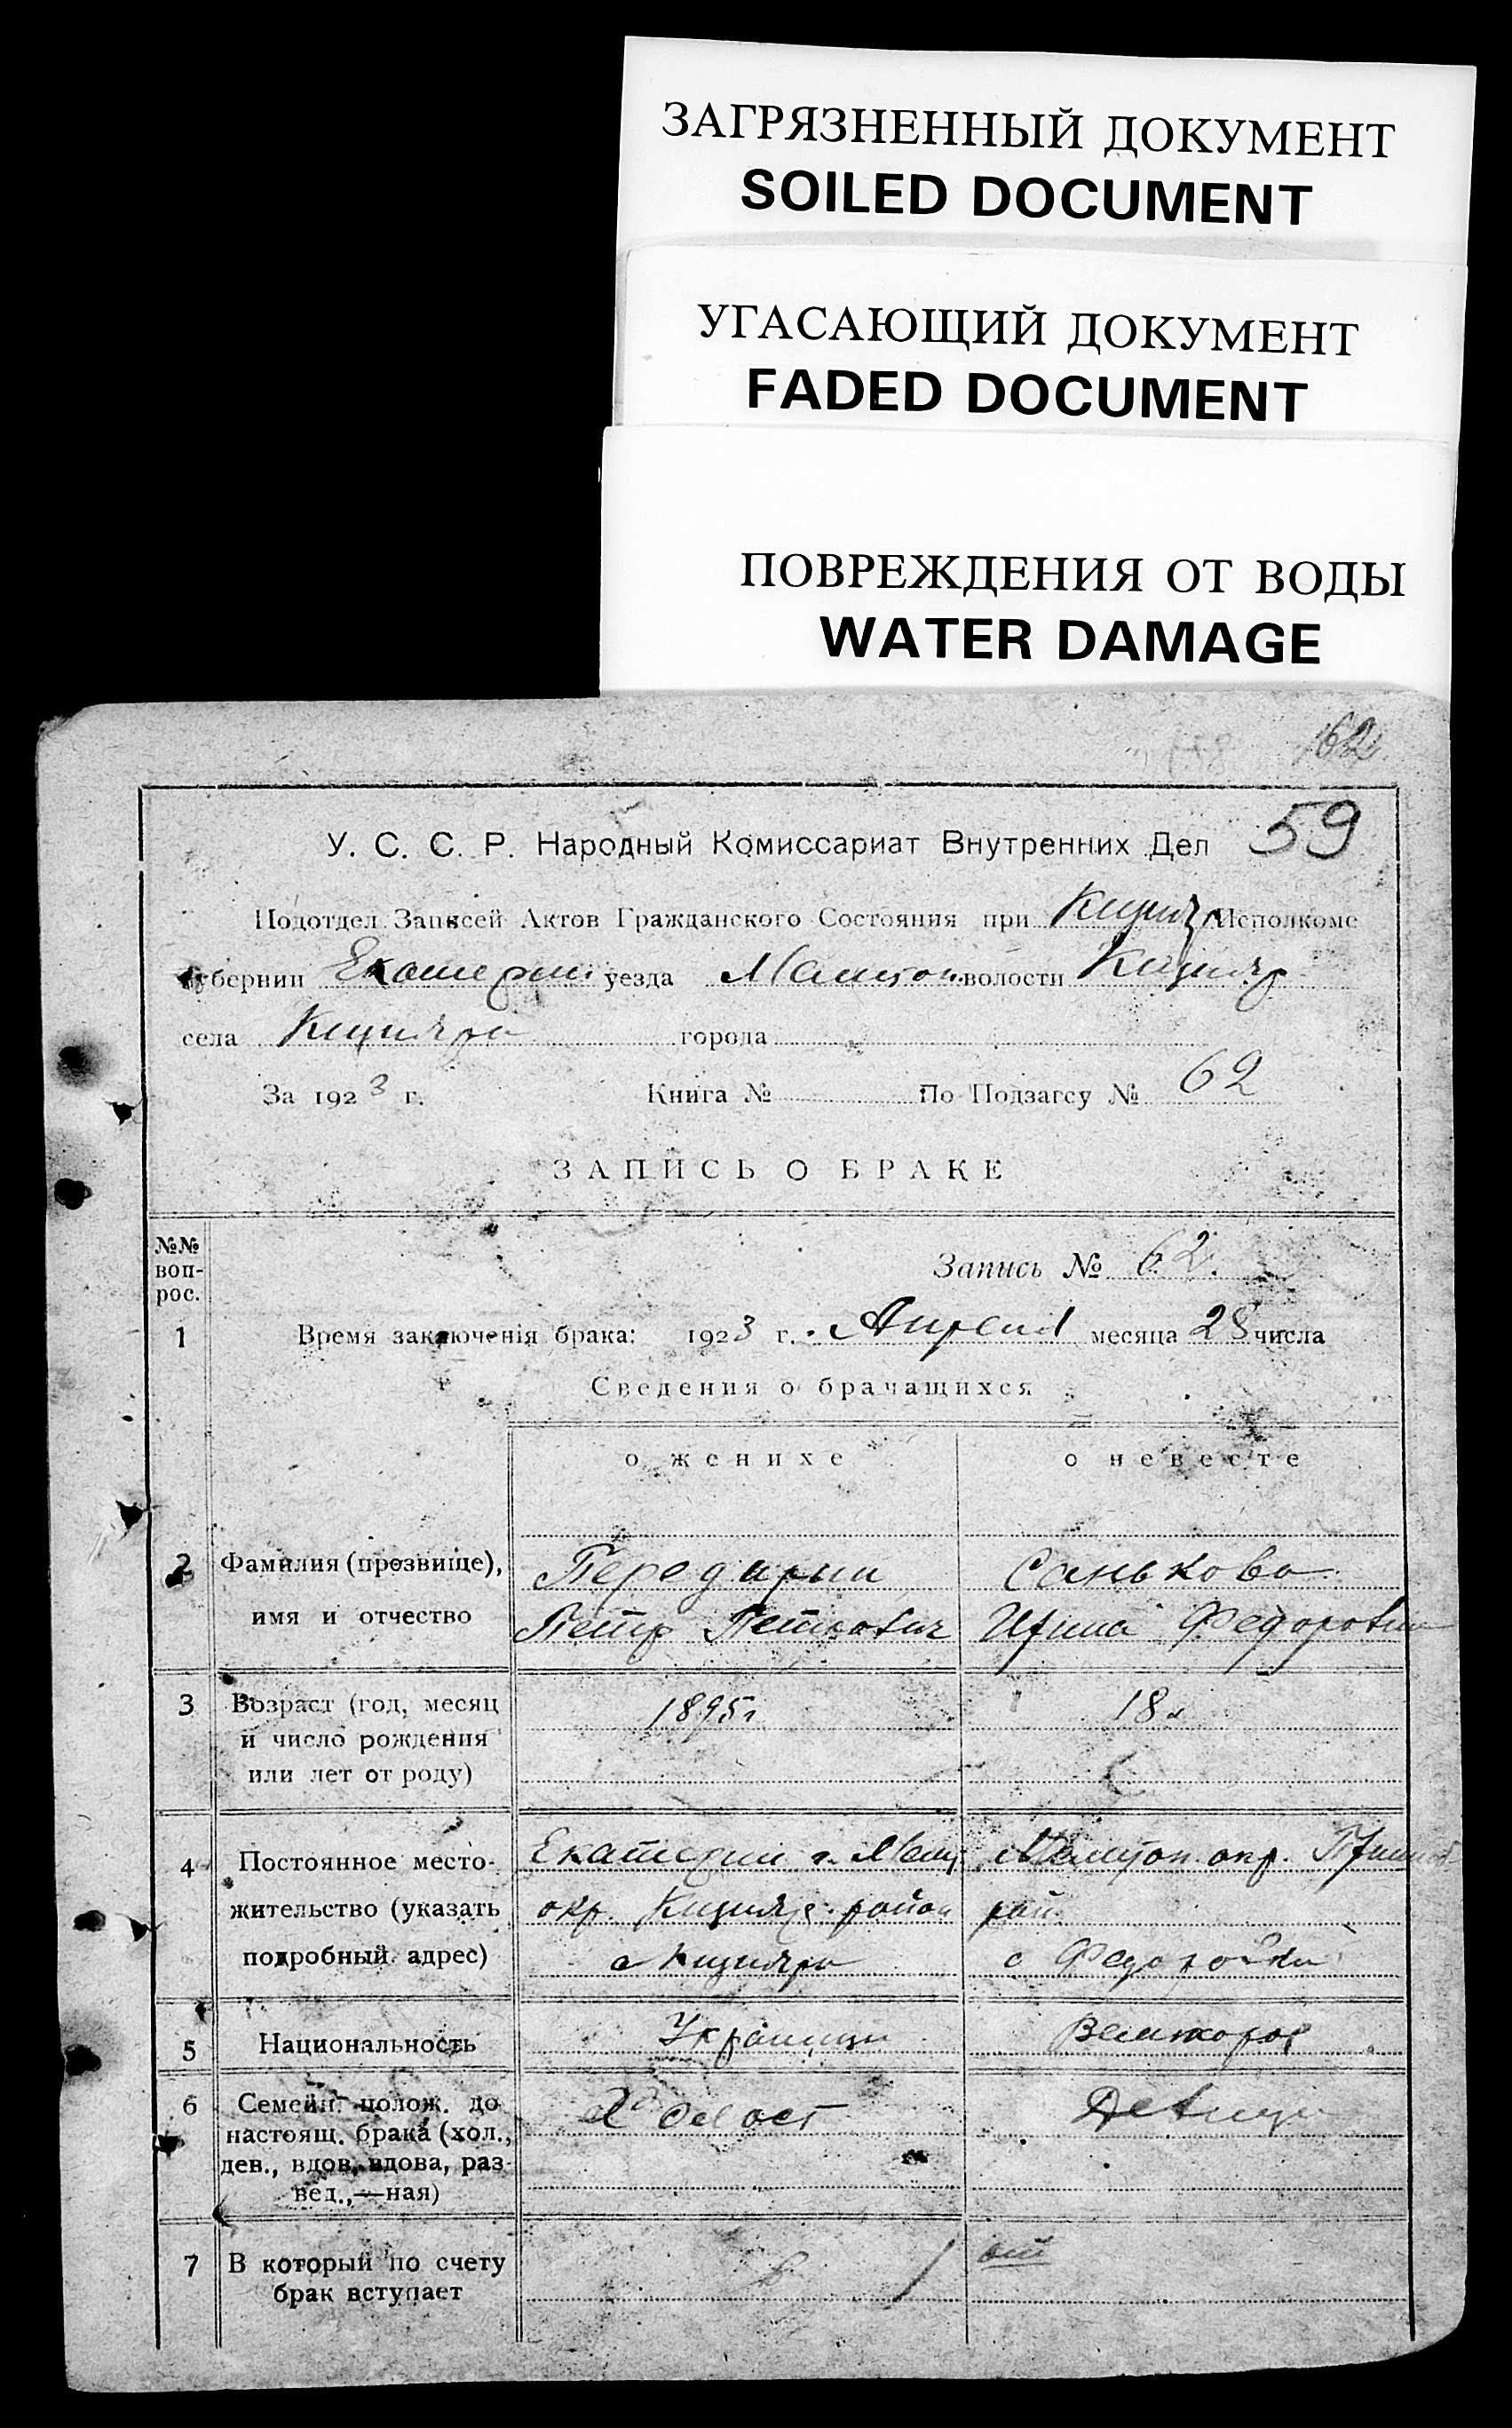 ЗАГРЯЗНЕННЫЙ ДОКУМЕНТ
SOILED DOCUMENT
УГАСАЮЩИЙ ДОКУМЕНТ
FADED DOCUMENT
ПОВРЕЖДЕНИЯ ОТ ВОДЫ
WATER DAMAGE
162
59
У. С. С. Р. Народный Комиссариат Внутренних Дел
Подотдел Записей Актов Гражданского Состояния при Исполкоме
губернии Екатерин уезда волости
села города
За 1923 г. Книга № По Подзагсу № 62
ЗАПИСЬ О БРАКЕ
№№ воп-рос.
Запись № 62.
1 Время заключенія брака: 1923 г. Апреля месяца 28 числа
Сведения о брачащихся
о женихе о невесте
2 Фамилия (прозвище), Санькова
имя и отчество Петр Петрович Ирина Федоровна
3 Возраст (год, месяц 1895г 18л
и число рождения
или лет от роду)
4 Постоянное место- Екатерин г. Мелит Мелитоп. окр.
жительство (указать окр. район рай.
подробный адрес) с с
5 Национальность Украинец Великорос
6 Семейн. полож. до Холост Девица
настоящ. брака (хол.,
дев., вдов, вдова, раз-
вед.,—ная)
7 В который по счету
брак вступает